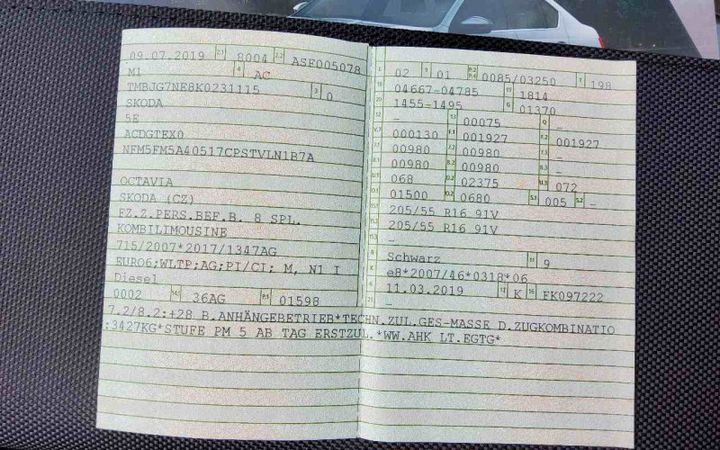 09.07.2019 2.1 8004 2.2 ASF005078
M1 4 AC
TMBJG7NE8K0231115 3 0
SKODA
5E
ACDGTEX0
NFM5FM5A40517CPSTVLN1B7A
OCTAVIA
SKODA (CZ)
FZ.Z.PERS.BEF.B. 8 SPL.
KOMBILIMOUSINE
715/2007*2017/1347AG
EURO6;WLTP;AG;PI/CI; M, N1 I
Diesel
0002 36AG 01598
02 01 0085/03250 198
04667-04785 1814
1455-1495 01370
- 00075 -
000130 001927 001927
00980 00980 -
00980 00980 -
068 02375 072
01500 0680 005 -
205/55 R16 91V
205/55 R16 91V
-
Schwarz 9
e8*2007/46*0318*06
11.03.2019 K FK097222
7.2/8.2:+28 B.ANHÄNGEBETRIEB*TECHN.ZUL.GES-MASSE D.ZUGKOMBINATIO
:3427KG*STUFE PM 5 AB TAG ERSTZUL.*WW.AHK LT.EGTG*